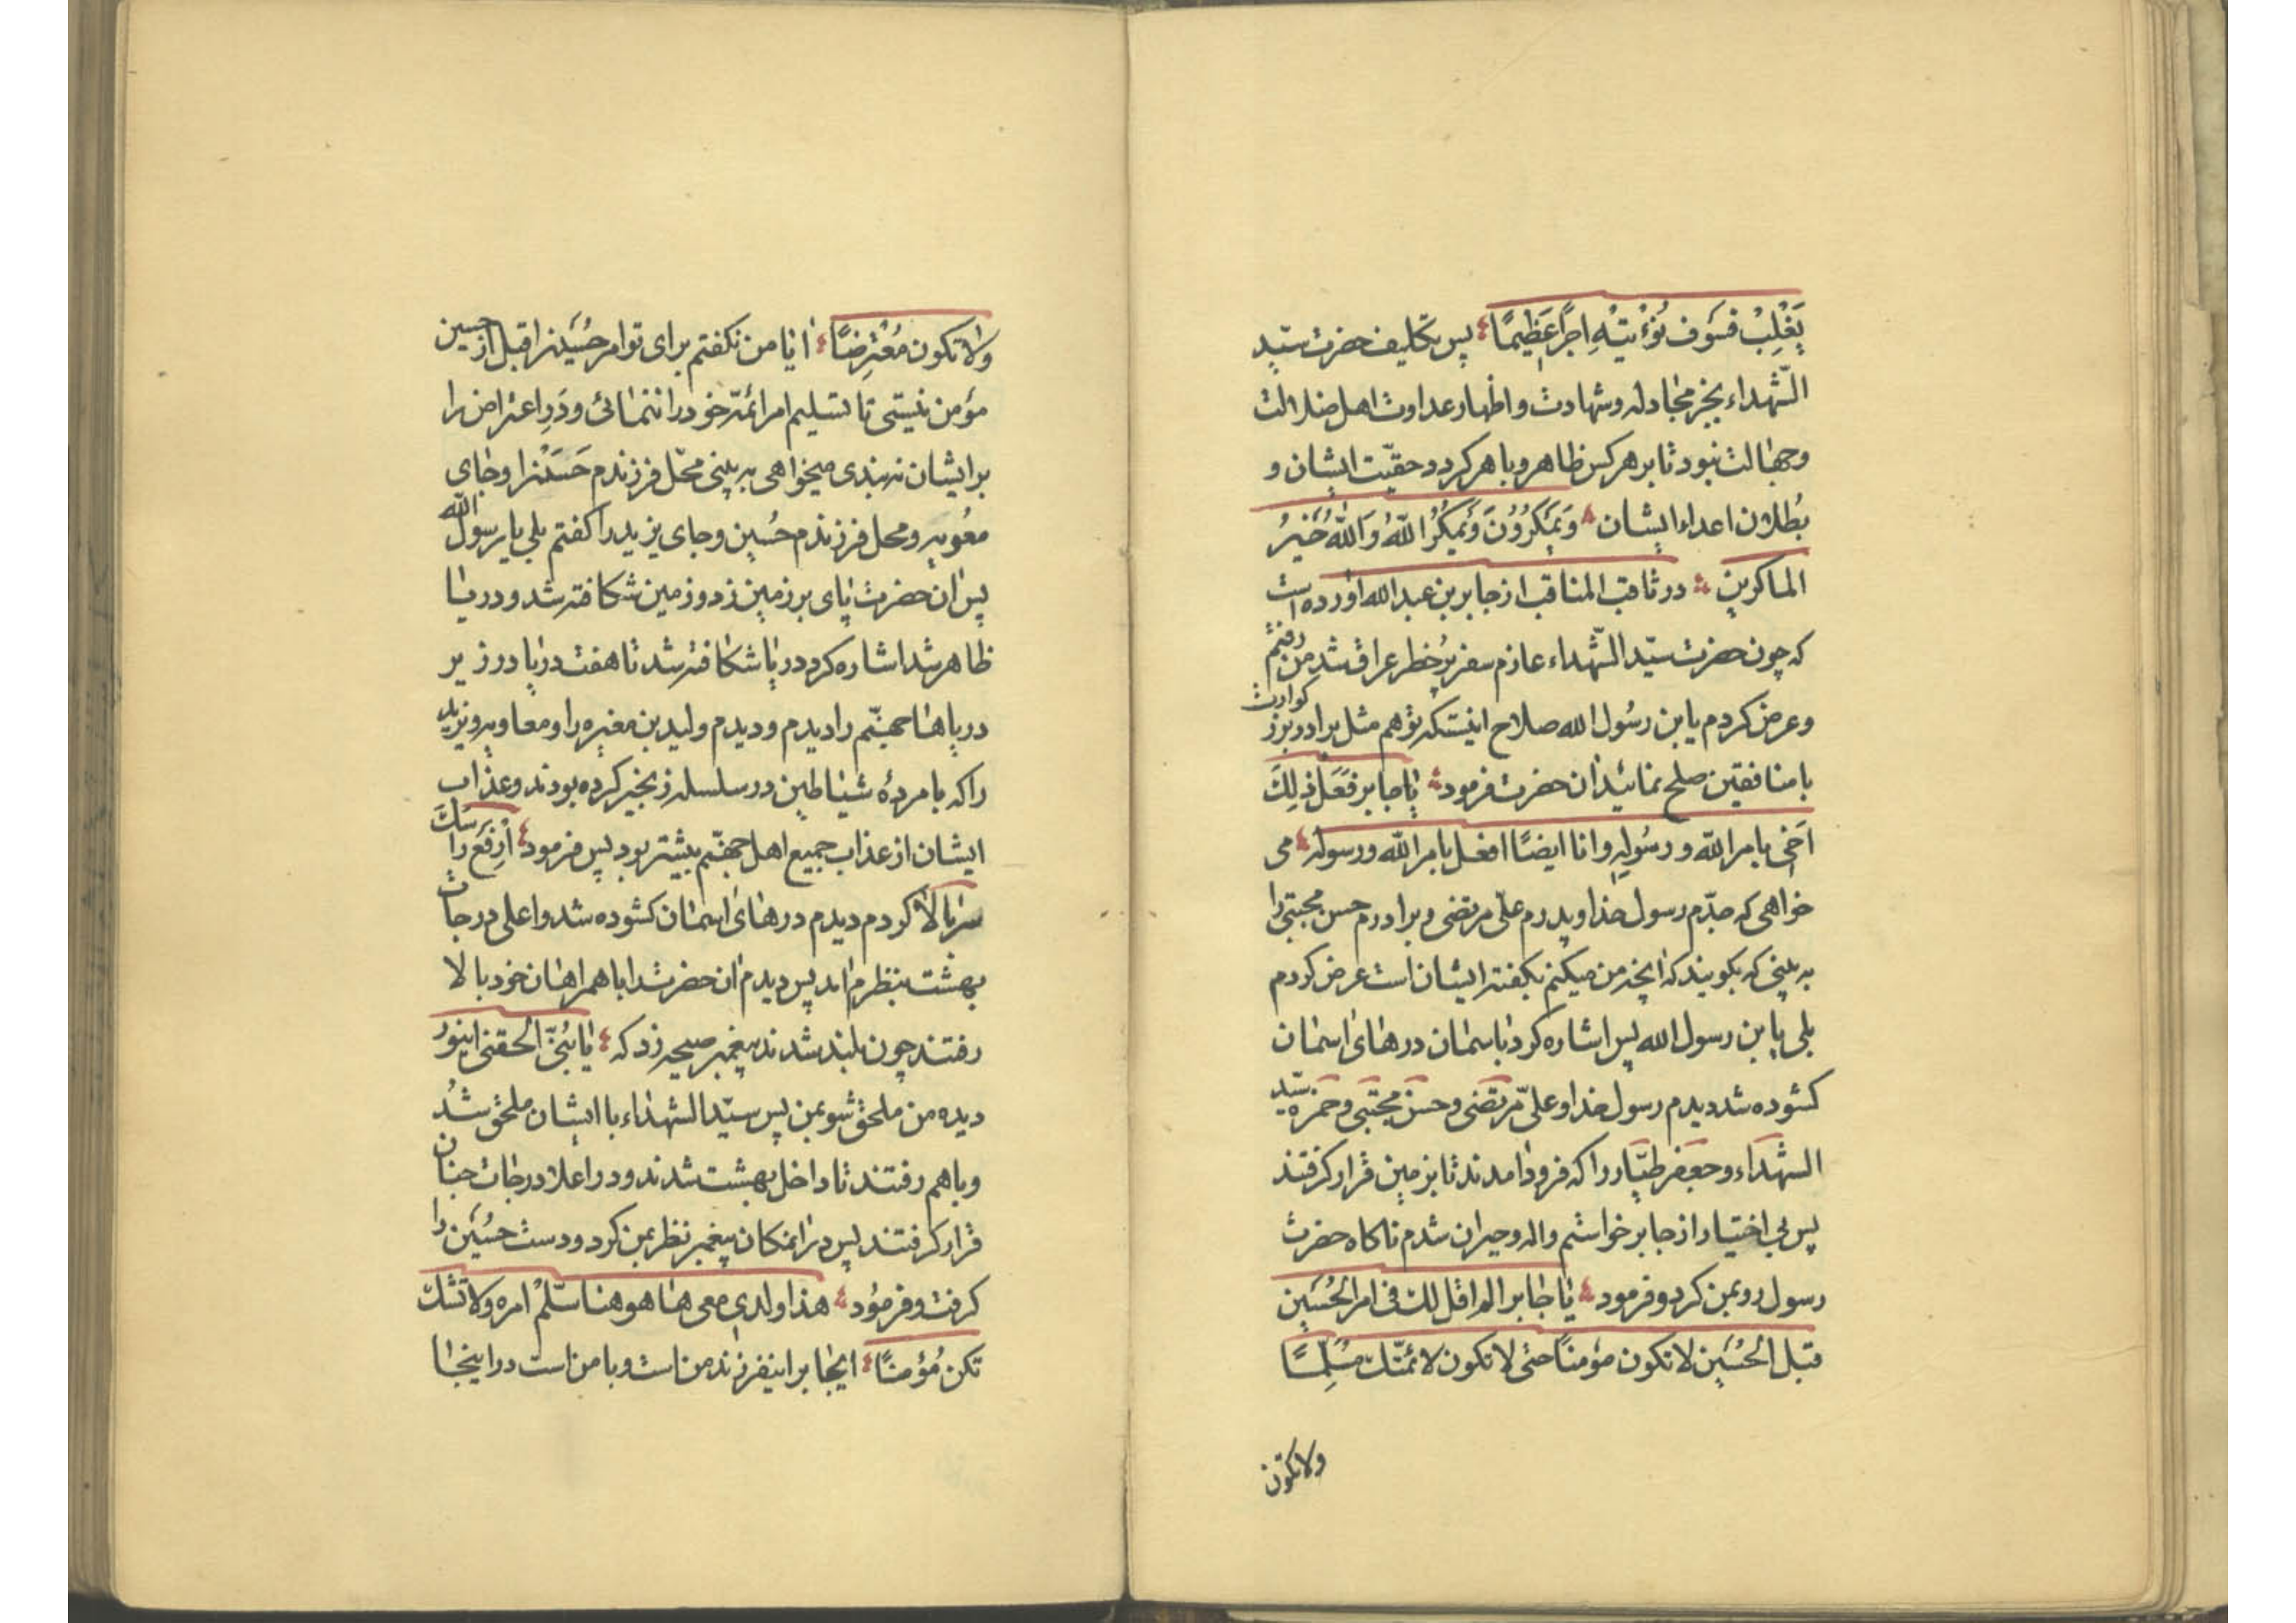 یَغْلِبْ فسَوف نُؤْتیْهِ اجرًا عَظِیمًا پس تکلیف حضرت سیّد
الشّهداء بجز مجادله و شهادت و اظهار عداوت اهل ضلالت
و جهالت نبود تا بر هر کس ظاهر و باهر کردد حقیّت ایشان و
بُطلان اعداء ایشان وَیَمْکُرُوُنَ وَیَمْکُرُ اللّهُ وَاللّهُ خَیرُ
الماکرین در ثاقب المناقب از جابر بن عبدالله اورده است
که چون حضرت سیّد الشّهداء عازم سفر پُرخطر عراق شد من رفتم
و عرض کردم یابن رسُول الله صلاح اینستکه تو هم مثل برادر بزرکوارت
با منافقین صلح نمائید ان حضرت فرمود یا جابر فَعَلَ ذلِکَ
اَخی بامر اللّه و رسُولِهِ وانا ایضًا افعل بامر اللّه ورسوله می
خواهی که جدّم رسول خدا و پدرم علّی مرتضی و برادرم حسن مجتبی را
به بینی که بکویند که انچه من میکنم بکفته ایشان است عرض کردم
بلی یابن رسول الله پس اشاره کرد باسمان درهای اسمان
کشوده شد دیدم رسول خدا و علّی مرتضی و حسن مجتبی و حمزه سیّد
الشهداء و جعفر طیّار را که فرود امدند تا بزمین قرار کرفتند
پس بی اختیار از جا برخواستم واله و حیران شدم ناکاه حضرت
رسول رو بمن کرد و فرمود یا جابر الم اقل لك فی امر الحُسَین
قبل الحُسَین لا تکون مؤمنًا حتی لا تکون لائمّتك مسَلِّمًا
ولا تکون
ولا تکون مُعْتَرِضًا ایا من نکفتم برای تو امر حُسَینرا قبل از حسین
مؤمن نیستی تا تسلیم امر ائمّه خود را ننمائی و دَرِ اعتراض را
بر ایشان نه بندی میخواهی به بینی محّل فرزندم حَسَنْرا و جای
معُویه و محل فرزندم حُسین و جای یزید را کفتم بلی یا رسول الله
پس ان حضرت پای بر زمین زد و زمین شکافته شد و دریا
ظاهر شد اشاره کرد دریا شکافته شد تا هفت دریا در زیر
دریاها جهنّم را دیدم و دیدم ولید بن مغیره را و معاویه و یزید
را که با مردۀ شیاطین در سلسله زنجیر کرده بودند و عذاب
ایشان از عذاب جمیع اهل جهنّم بیشتر بود پس فرمود اَرفَع راْسَكَ
سر بالا کردم دیدم درهای اسمان کشوده شد و اعلی درجات
بهشت بنظرم امد پس دیدم ان حضرت را با همراهان خود بالا
رفتند چون بلند شدند پیغمبر صیحه زد که یا بُنیَّ الحقنی اینور
دیده من ملحق شو بمن پس سیّد الشهداء با ایشان ملحق شُد
و باهم رفتند تا داخل بهشت شدند و در اعلا درجات جنان
قرار کرفتند پس در انمکان پیغمبر نظر بمن کرد و دست حسُیَن را
کرفت و فرمُود هذا ولدی معی ها هو هنا سَلّمْ امره ولا تشك
تکن مُؤمنًا ایجابر اینفرزند من است و با من است در اینجا